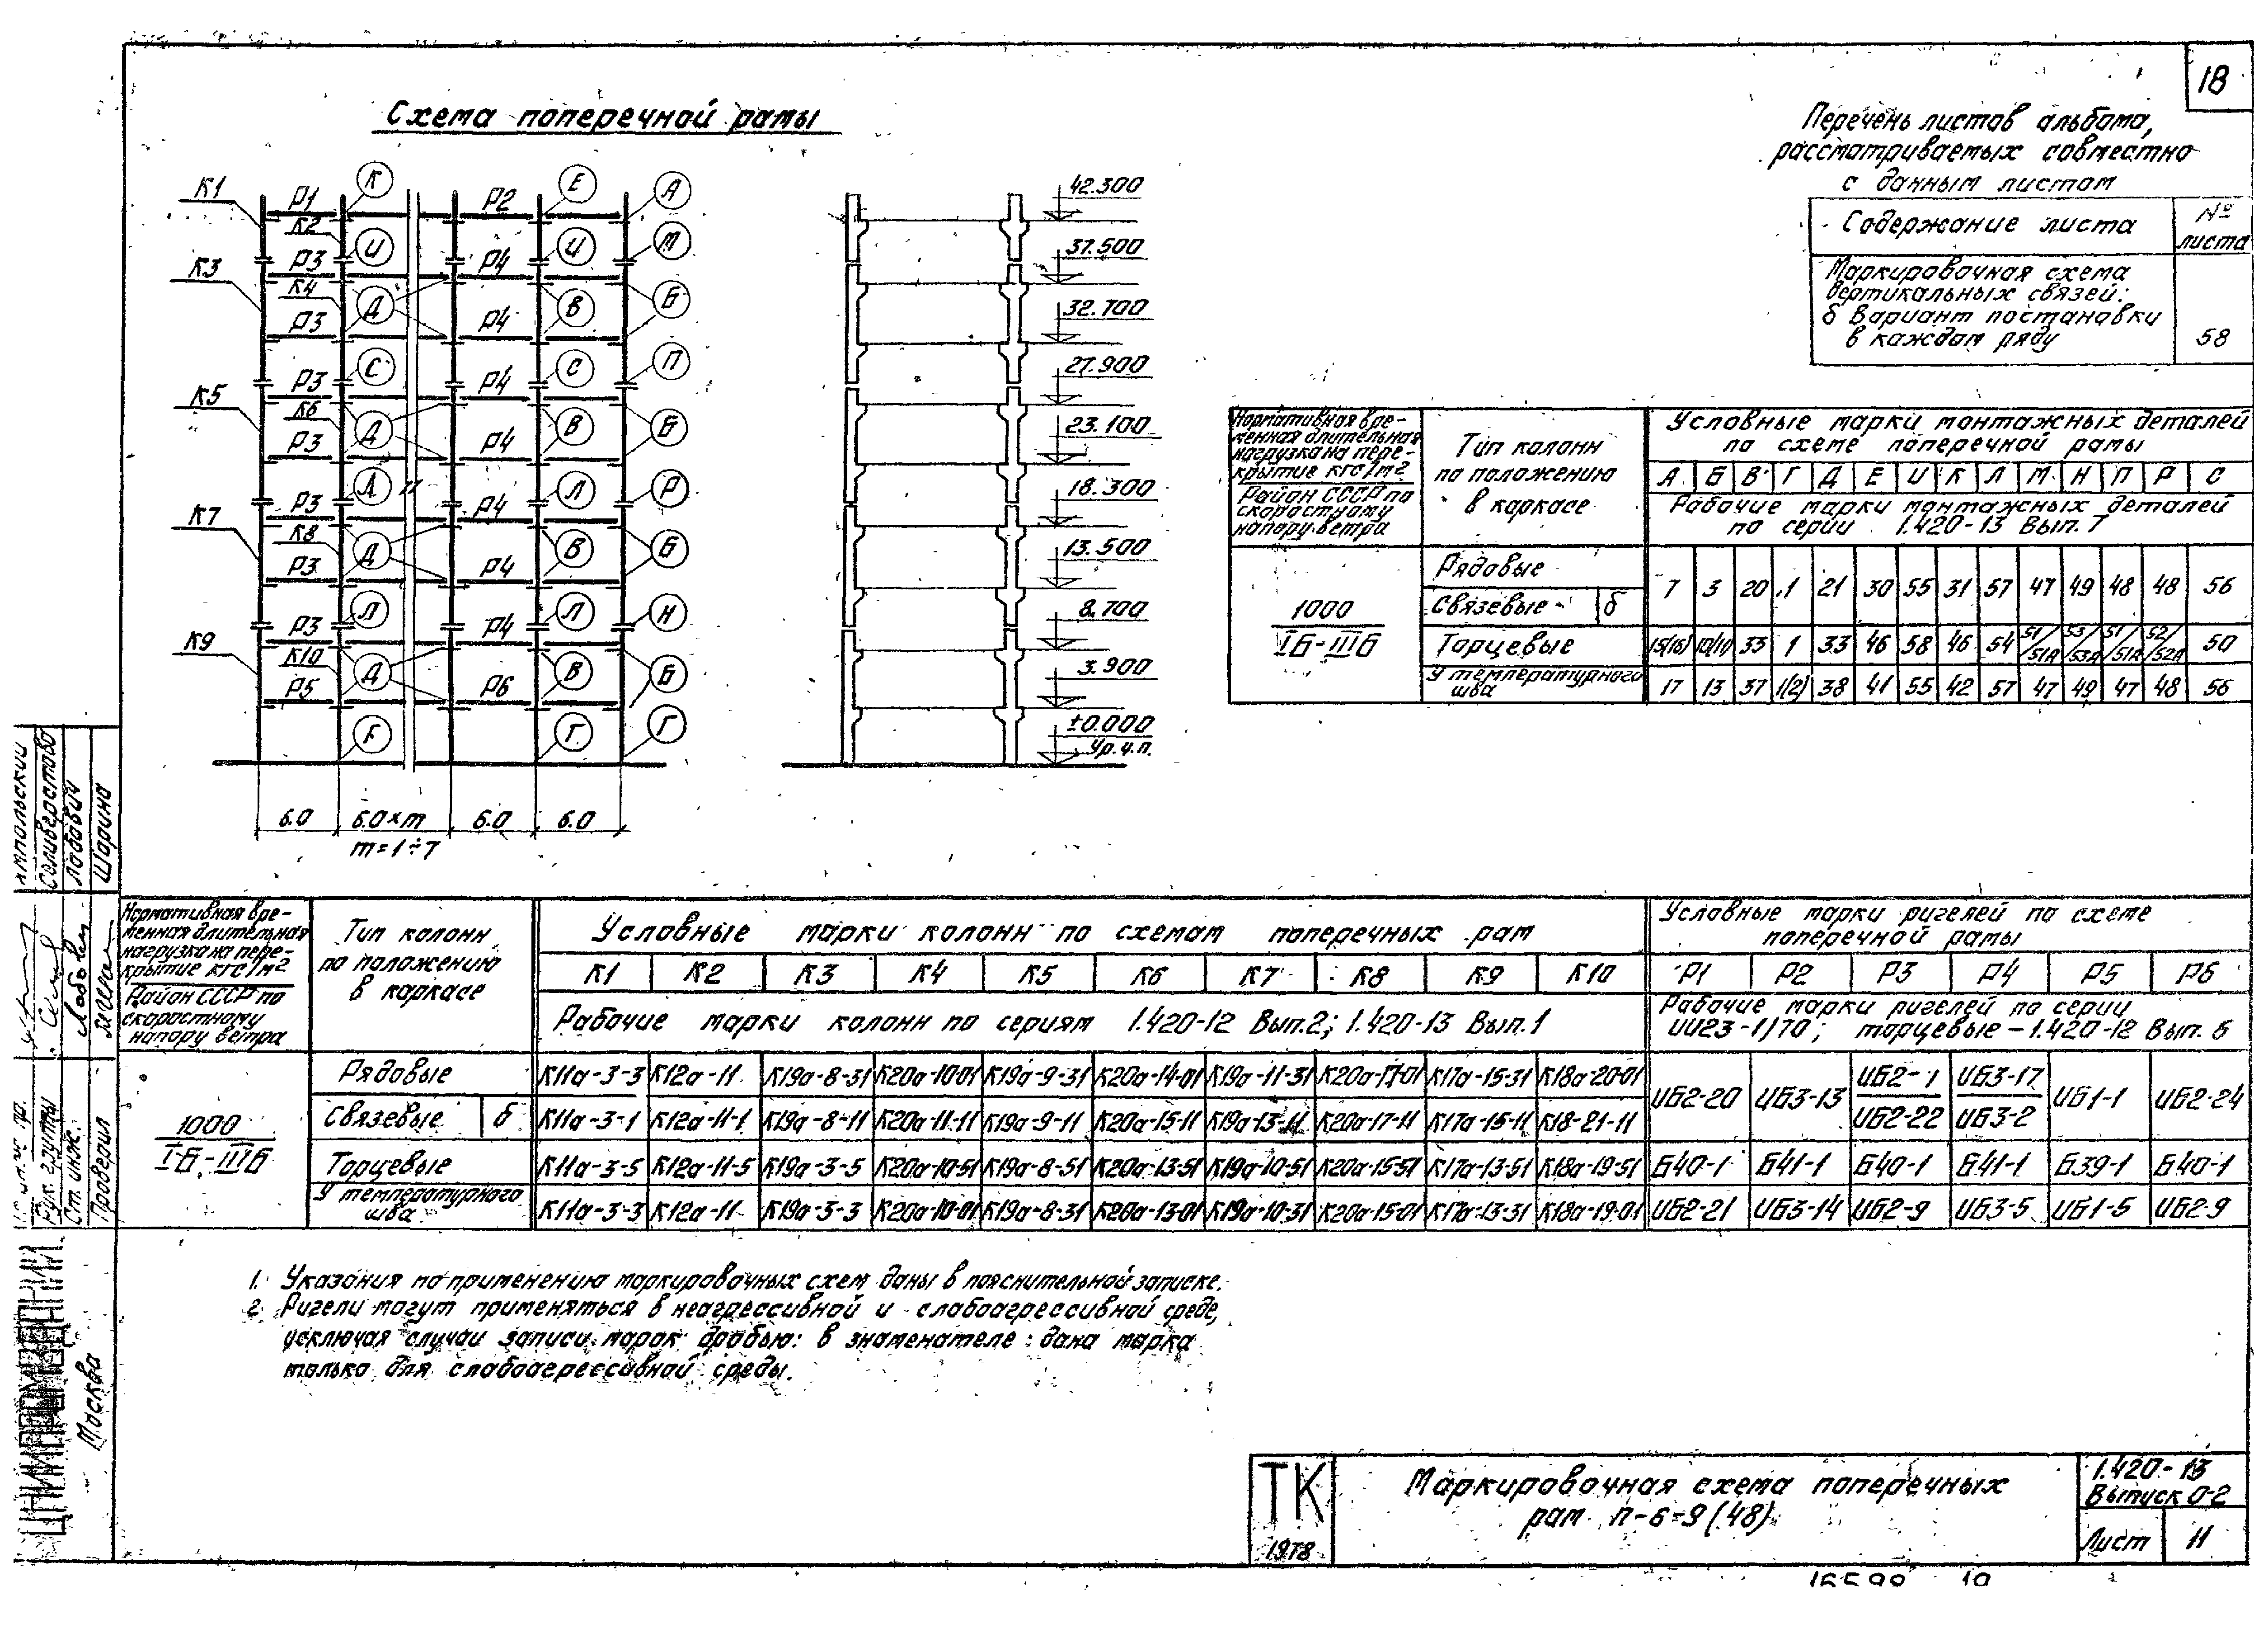 18
Схема поперечной рамы
К1 Р1 К2 Р2 К Е А
К3 Р3 К4 Р4 И И М
Р3 Р4 Д В Б
К5 Р3 К6 Р4 С С П
Р3 Р4 Д В Б
К7 Р3 К8 Р4 Л Л Р
Р3 Р4 Д В Б
К9 Р3 К10 Р4 Л Л Н
Р5 Р6 Д В Б
Г Г Г
6.0 6.0×m 6.0 6.0
m=1÷7
42.300
37.500
32.700
27.900
23.100
18.300
13.500
8.700
3.900
±0.000
Ур.ч.п.
Перечень листов альбома,
рассматриваемых совместно
с данным листом
Содержание листа № листа
Маркировочная схема
вертикальных связей:
б вариант постановки
в каждом ряду 58
Нормативная вре-
менная длительная
нагрузка на пере-
крытие кгс/м2
Район СССР по
скоростному
напору ветра
Тип колонн
по положению
в каркасе
Условные марки монтажных деталей
по схеме поперечной рамы
А Б В Г Д Е И К Л М Н П Р С
Рабочие марки монтажных деталей
по серии 1.420-13 Вып. 7
1000
Iб-IIIб
Рядовые
Связевые б
7 3 20 1 21 30 55 31 57 47 49 48 48 56
Торцевые 15(16) 10/11 33 1 33 46 58 46 54 51/51А 53/53А 51/51А 52/52А 50
У температурного
шва 17 13 37 1(2) 38 41 55 42 57 47 49 47 48 56
Нормативная вре-
менная длительная
нагрузка на пере-
крытие кгс/м2
Район СССР по
скоростному
напору ветра
Тип колонн
по положению
в каркасе
Условные марки колонн по схемам поперечных рам
К1 К2 К3 К4 К5 К6 К7 К8 К9 К10
Рабочие марки колонн по сериям 1.420-12 Вып.2; 1.420-13 Вып.1
Условные марки ригелей по схеме
поперечной рамы
Р1 Р2 Р3 Р4 Р5 Р6
Рабочие марки ригелей по серии
ИИ23-1/70; торцевые-1.420-12 Вып. 6
1000
Iб-IIIб
Рядовые К11а-3-3 К12а-11 К19а-8-31 К20а-10-01 К19а-9-31 К20а-14-01 К19а-11-31 К20а-17-01 К17а-15-31 К18а-20-01
Связевые б К11а-3-1 К12а-11-1 К19а-8-11 К20а-11-11 К19а-9-11 К20а-15-11 К19а-13-11 К20а-17-11 К17а-15-11 К18-21-11
ИБ2-20 ИБ3-13 ИБ2-1/ИБ2-22 ИБ3-17/ИБ3-2 ИБ1-1 ИБ2-24
Торцевые К11а-3-5 К12а-11-5 К19а-3-5 К20а-10-51 К19а-8-51 К20а-13-51 К19а-10-51 К20а-15-51 К17а-13-51 К18а-19-51 Б40-1 Б41-1 Б40-1 Б41-1 Б39-1 Б40-1
У температурного
шва К11а-3-3 К12а-11 К19а-3-3 К20а-10-01 К19а-8-31 К20а-13-01 К19а-10-31 К20а-15-01 К17а-13-31 К18а-19-01 ИБ2-21 ИБ3-14 ИБ2-9 ИБ3-5 ИБ1-5 ИБ2-9
1. Указания по применению маркировочных схем даны в пояснительной записке.
2. Ригели могут применяться в неагрессивной и слабоагрессивной среде,
исключая случаи записи марок дробью: в знаменателе дана марка
только для слабоагрессивной среды.
Ямпольский
Селиверстова
Лабович
Шарина
Рук. группы
Ст. инж.
Проверил
ЦНИИПРОМЗДАНИЙ
Москва
ТК
1978
Маркировочная схема поперечных
рам П-6-9(48)
1.420-13
Выпуск 0-2
Лист 11
16599 19